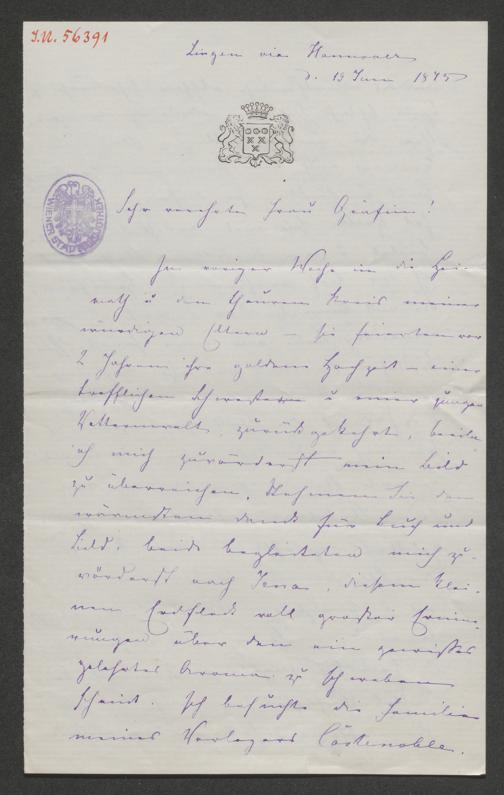 J.N. 56391
Lingen via Hannover
d. 19 Juni 1875
WIENER STADTBIBLIOTHEK
Sehr verehrte Frau Gräfin!
In voriger Woche in die Hei-
math u den theuren Kreis meiner
würdigen Eltern – sie feierten vor
2 Jahren ihre goldene Hochzeit – einer
trefflichen Schwester u einer jungen
zurückgekehrt, beeile
ich mich zuvörderst mein Bild
zu überreichen. Nehmen Sie den
wärmsten Dank für Buch und
Bild, beide begleiteten mich zu-
vörderst nach Jena, diesem klei-
nen Erdfleck voll großer Erinne-
rungen über dem ein gewisses
gelehrtes Aroma zu schweben
scheint. Ich besuchte die Familie
meines Verlegers Costenoble,